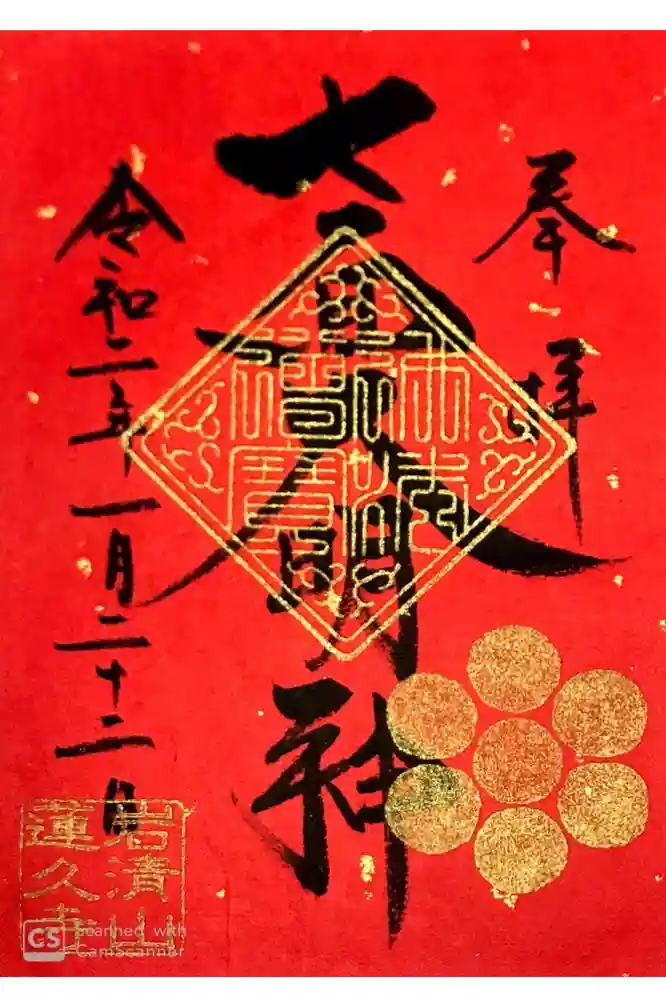 奉拝
七面大明神
令和二年一月二十二日
岩清山
蓮久寺
CS Scanned with
CamScanner